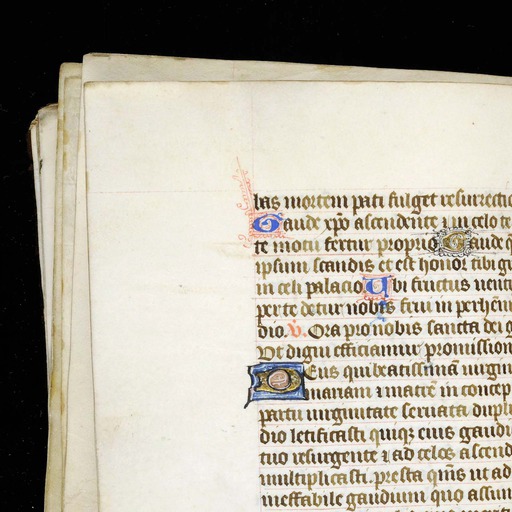 bas mortem pati fulget resurrectio
Gaude xpo ascendente 
te motu fertur proprio Gaude q
ipsum scandis et est honor tibi g
in celi palacio Ubi fructus vent
per te detur nobis frui in perhen
dio. V. Ora pro nobis sancta dei g
Ut digni efficiamur promission
Deus qui beatissimā virgin
mariam ⁊ matrē in concep
partu virginitate servata dupli
dio letificasti quiqȝ eius gaudi
tuo resurgente ⁊ ad celos ascend
multiplicasti. presta qm̄s ut ad
ineffabile gaudium quo assum